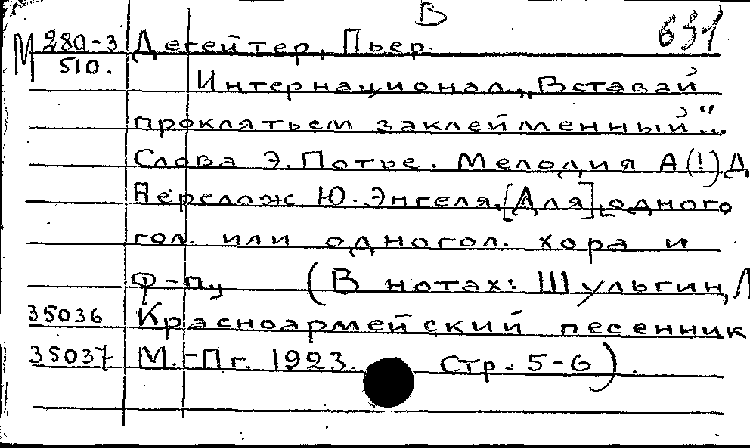 В
631
М 280-3 Дегейтер, Пьер.
510.
Интернационал. „Вставай
проклятьем заклейменный"...
Слова Э. Потье. Мелодия А(!) Д
Перелож Ю. Энгеля. [Для] одного
гол. или одногол. хора и
ф-п. (В нотах: Шульгин, Л
35036 Красноармейский песенник
35037 М.-Пг. 1923. Стр. 5-6).